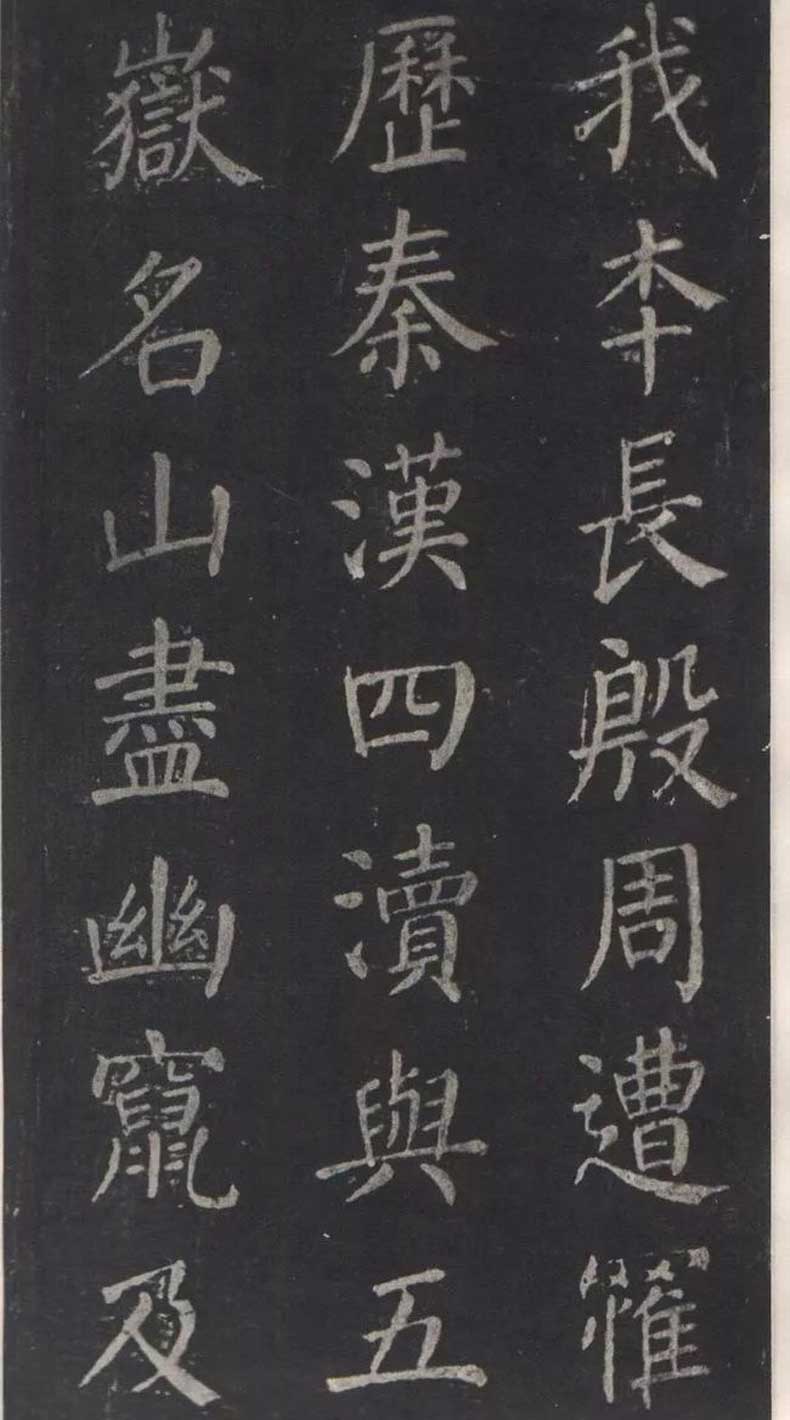 我夲長殷周遭罹
歷秦漢四瀆與五
嶽名山盡幽竄及